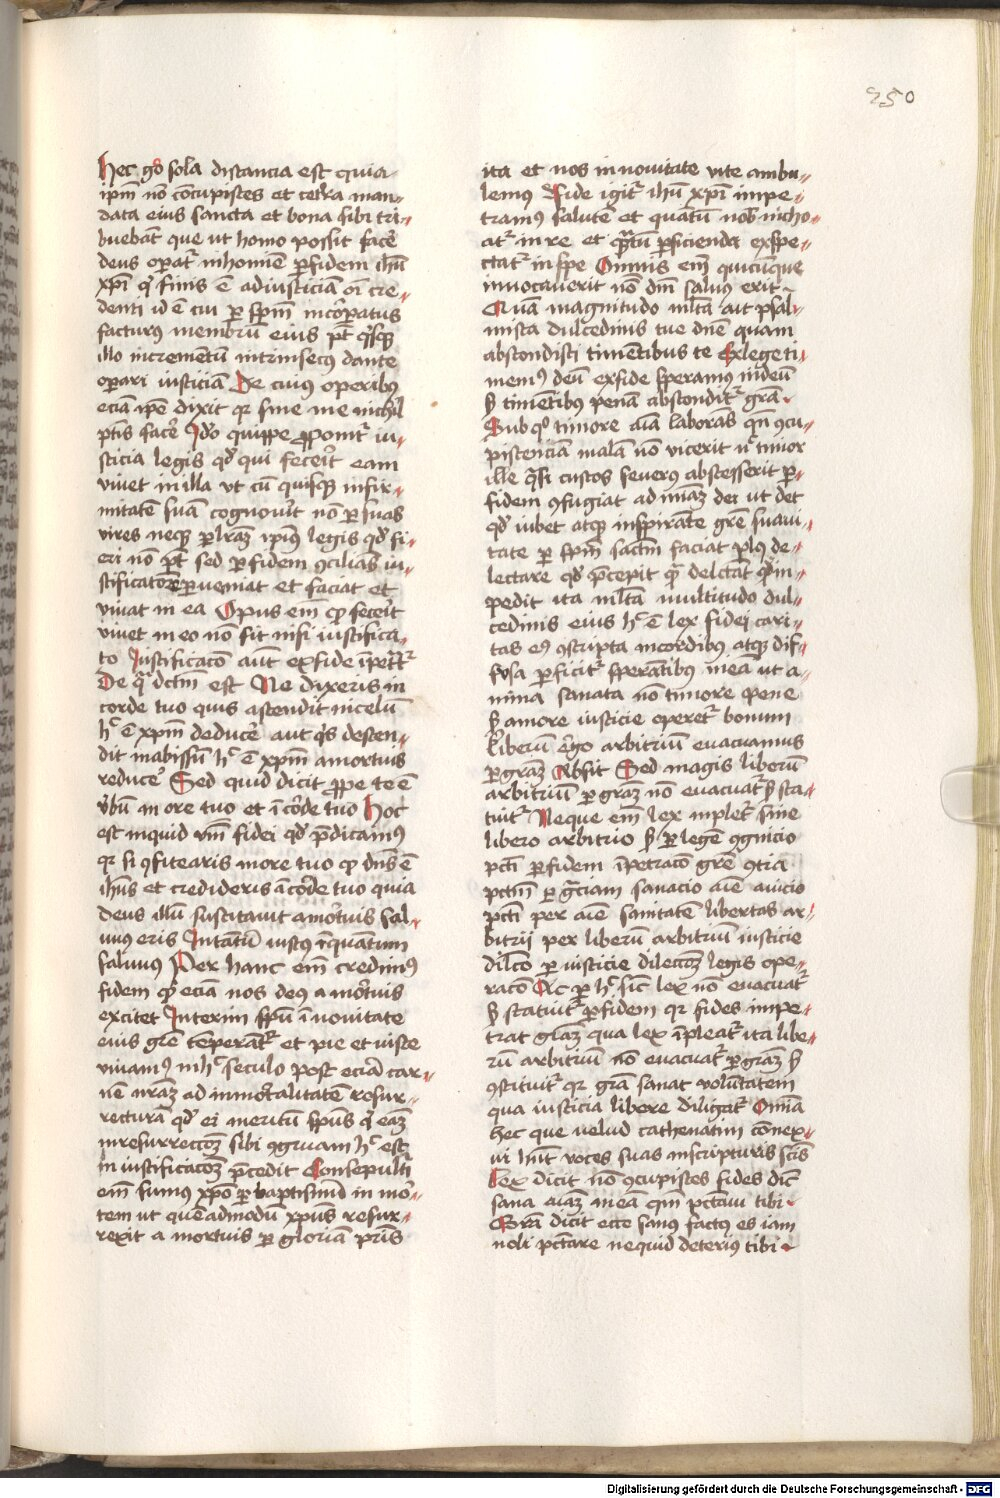 250
hec g̊o sola distancia est quia
ip̅m no̅ co̅cupistes et cet̅a man-
data eius sancta et bona sibi tri-
buebant que ut homo possit face̅
deus operat᷑ in homi̅e p̱ fidem ih̅u
xp̅i q̇ finis e̅ ad iusticia̅ o̅i cre-
denti id e̅ cui p̱ sp̅m inco̅rporatus
facturus membru̅ eius pt̅ q̇sq̛
illo incrementu̅ intrinsecus dante
operari iusticia̅ De cuius operibus
ecia̅ ip̅e dixit qr sine me nichil
pt̅is face̅ Id̊o quippe p̱ponit᷑ iu-
sticia legis qd̛ qui fecerit eam
vivet in illa vt cu̅ quisq̛ infir-
mitate̅ sua̅ cognoverit no̅ p̱ suas
vires neq̛ p̱ l̅ram ipius legis qd̛ fi-
eri no̅ pt̅ sed p̱ fidem ꝯcilia̅s iu-
stificatore̅ p̱veniat et faciat et
vivat in ea Opus em̅ qd̛ fecerit
vivet in eo no̅ fit nisi iustifica-
to Iustificaco̅ aut̅ ex fide i̅petrat᷑
De q̇ dc̅m est Ne dixeris in
corde tuo quis ascendit in celu̅
h̛ e̅ xp̅m deduce̅ aut q̇s descen-
dit in abissu̅ h̛ e̅ xp̅m a mortuis
reduce̅ Sed quid dicit p̱pe te e̅
v̅bu̅ in ore tuo et i̅ corde tuo Hoc
est inquid v̅m fidei qd̛ p̅dicamus
qr si ꝯfitearis in ore tuo q̛ dn̅s e̅
ih̅us et credideris i̅ corde tuo quia
deus illu̅ suscitavit a mortuis sal-
vus eris Intantu̅ iustus i̅quantum
salvus Per hanc em̅ credimus
fidem q̛ ecia̅ nos deus a mortuis
excitet Interim sp̅u i̅ novitate
eius gr̅e te̅perant᷑ et pie et iuste
vivamus in h̛ seculo post ecia̅ car-
ne n̅ra̅ ad immortalitate̅ resur-
rectura̅ qd̛ ei meritu̅ sp̅us q̇ ea̅
in resurrecco̅e̅ sibi ꝯgruam h̛ est
in iustificaco̅e̅ p̅cedit Consepulti
em̅ sumus xp̅o p̱ baptismu̅ in mor-
tem ut que̅admodu̅ xp̅us resur-
rexit a mortuis p̱ gloria̅ pr̅is
ita et nos in novitate vite ambu-
lemus Fide igit᷑ ih̅u xp̅i impe-
tramus salute̅ et quantu̅ nob̅ incho-
at᷑ in re et q̅tu̅ p̱ficienda exspe-
ctat᷑ in spe Omnis em̅ quicu̅que
invocaverit no̅ dn̅i salvus erit
Qua̅ magnitudo m̅lta ait psal-
mista dulcedinis tue dn̅e quam
abscondisti time̅tibus te Ex lege ti-
memus deu̅ ex fide speramus in deu̅
s̛ time̅tibus pena̅ abscondit᷑ gr̅a
Sub q̊ timore ai̅a laborans qn̅ ꝯcu-
piscencia̅ mala̅ no̅ vicerit n᷑ timor
ille q̅si custos severus abscesserit p̱
fidem ꝯfugiat ad mi̅am dei ut det
qd̛ iubet atq̛ inspirante gr̅e suavi-
tate p̱ sp̅m sac̅m faciat plus de-
lectare qd̛ p̅cepit q̅ delectat qd̛ im-
pedit ita m̅lta multitudo dul-
cedinis eius h̛ e̅ lex fidei cari-
tas eius ꝯscripta in cordibus atq̛ dif-
fusa p̱ficit᷑ sperantibus in ea̅ ut a-
nima sanata no̅ timore pene
s̛ amore iusticie operet᷑ bonum
Liberu̅ ergo arbitriu̅ evacuamus
p̱ gr̅am Absit Sed magis liberu̅
arbitriu̅ p̱ gr̅am no̅ evacuat᷑ s̛ sta-
tuit᷑ Neque em̅ lex implet᷑ sine
libero arbitrio s̛ p̱ lege̅ ꝯgnicio
pcti̅ p̱ fidem i̅petraco̅ gr̅e ꝯtra
pct̅m p̱ gr̅aciam sanacio ai̅e a vicio
pcti̅ per ai̅e sanitate̅ libertas ar-
bitrii per liberu̅ arbitriu̅ iusticie
dil̅co p̱ iusticie dilecco̅e̅ legis ope-
raco̅ Ac p̱ h̛ sic̅ lex no̅ evacuat᷑
s̛ statuit᷑ p̱ fidem qr fides impe-
trat gr̅am qua lex i̅pleat᷑ ita libe-
ru̅ arbitriu̅ no̅ evacuat᷑ p̱ gr̅am s̛
ꝯstituit᷑ qr gr̅a sanat volu̅tatem
qua iusticia libere diligat᷑ Om̅ia
hec que velud cathenatim co̅nex-
ui hn̅t voces suas in scripturis sc̅is
Lex dicit no̅ ꝯcupistes fides dic̅
sana ai̅am mea̅ qm̅ pcta̅vi tibi
Gr̅a dicit ecce sanus factus es iam
noli pct̅are ne quid deterius tibi
Digitalisierung gefördert durch die Deutsche Forschungsgemeinschaft - DFG